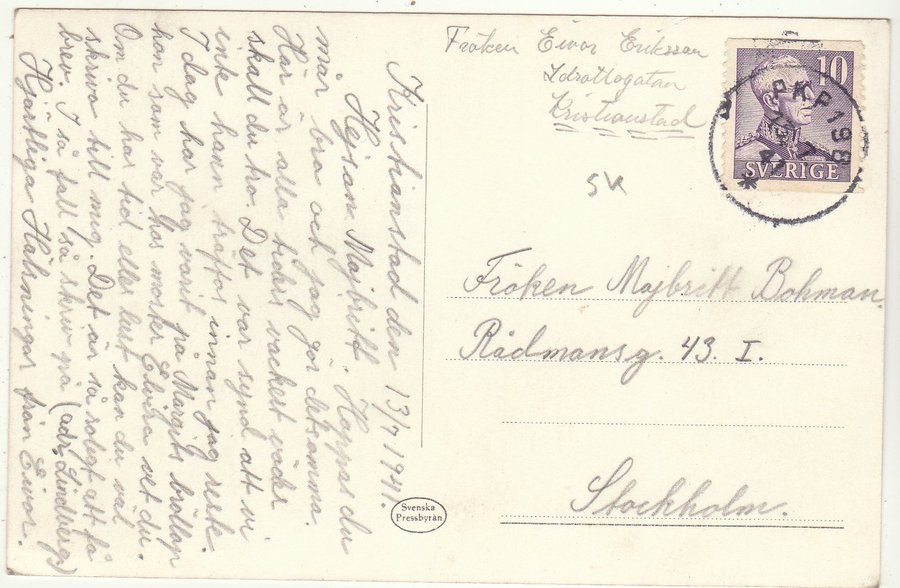 Kristianstad den 13/7 1941.
Hejsan Majbritt. Hoppas du
mår bra och jag gör detsamma.
Här är alla tiders vackert väder
skall du ha. Det var synd att vi
inte hann träffas innan jag reste.
I dag har jag varit på Margits bröllop
hon som var hos moster Elvira vet du.
Om du har tid eller lust kan du väl
skriva till mig. Det är så roligt att få
brev. I så fall så skriv på (adr. Lindberg)
Hjärtliga Hälsningar från Eivor.
Fröken Eivor Eriksson
Idrottsgatan
Kristianstad
SK
10
SVERIGE
PKP 198
13.7
41
Fröken Majbritt Bohman.
Rådmansg. 43. I.
Stockholm.
Svenska
Pressbyrån